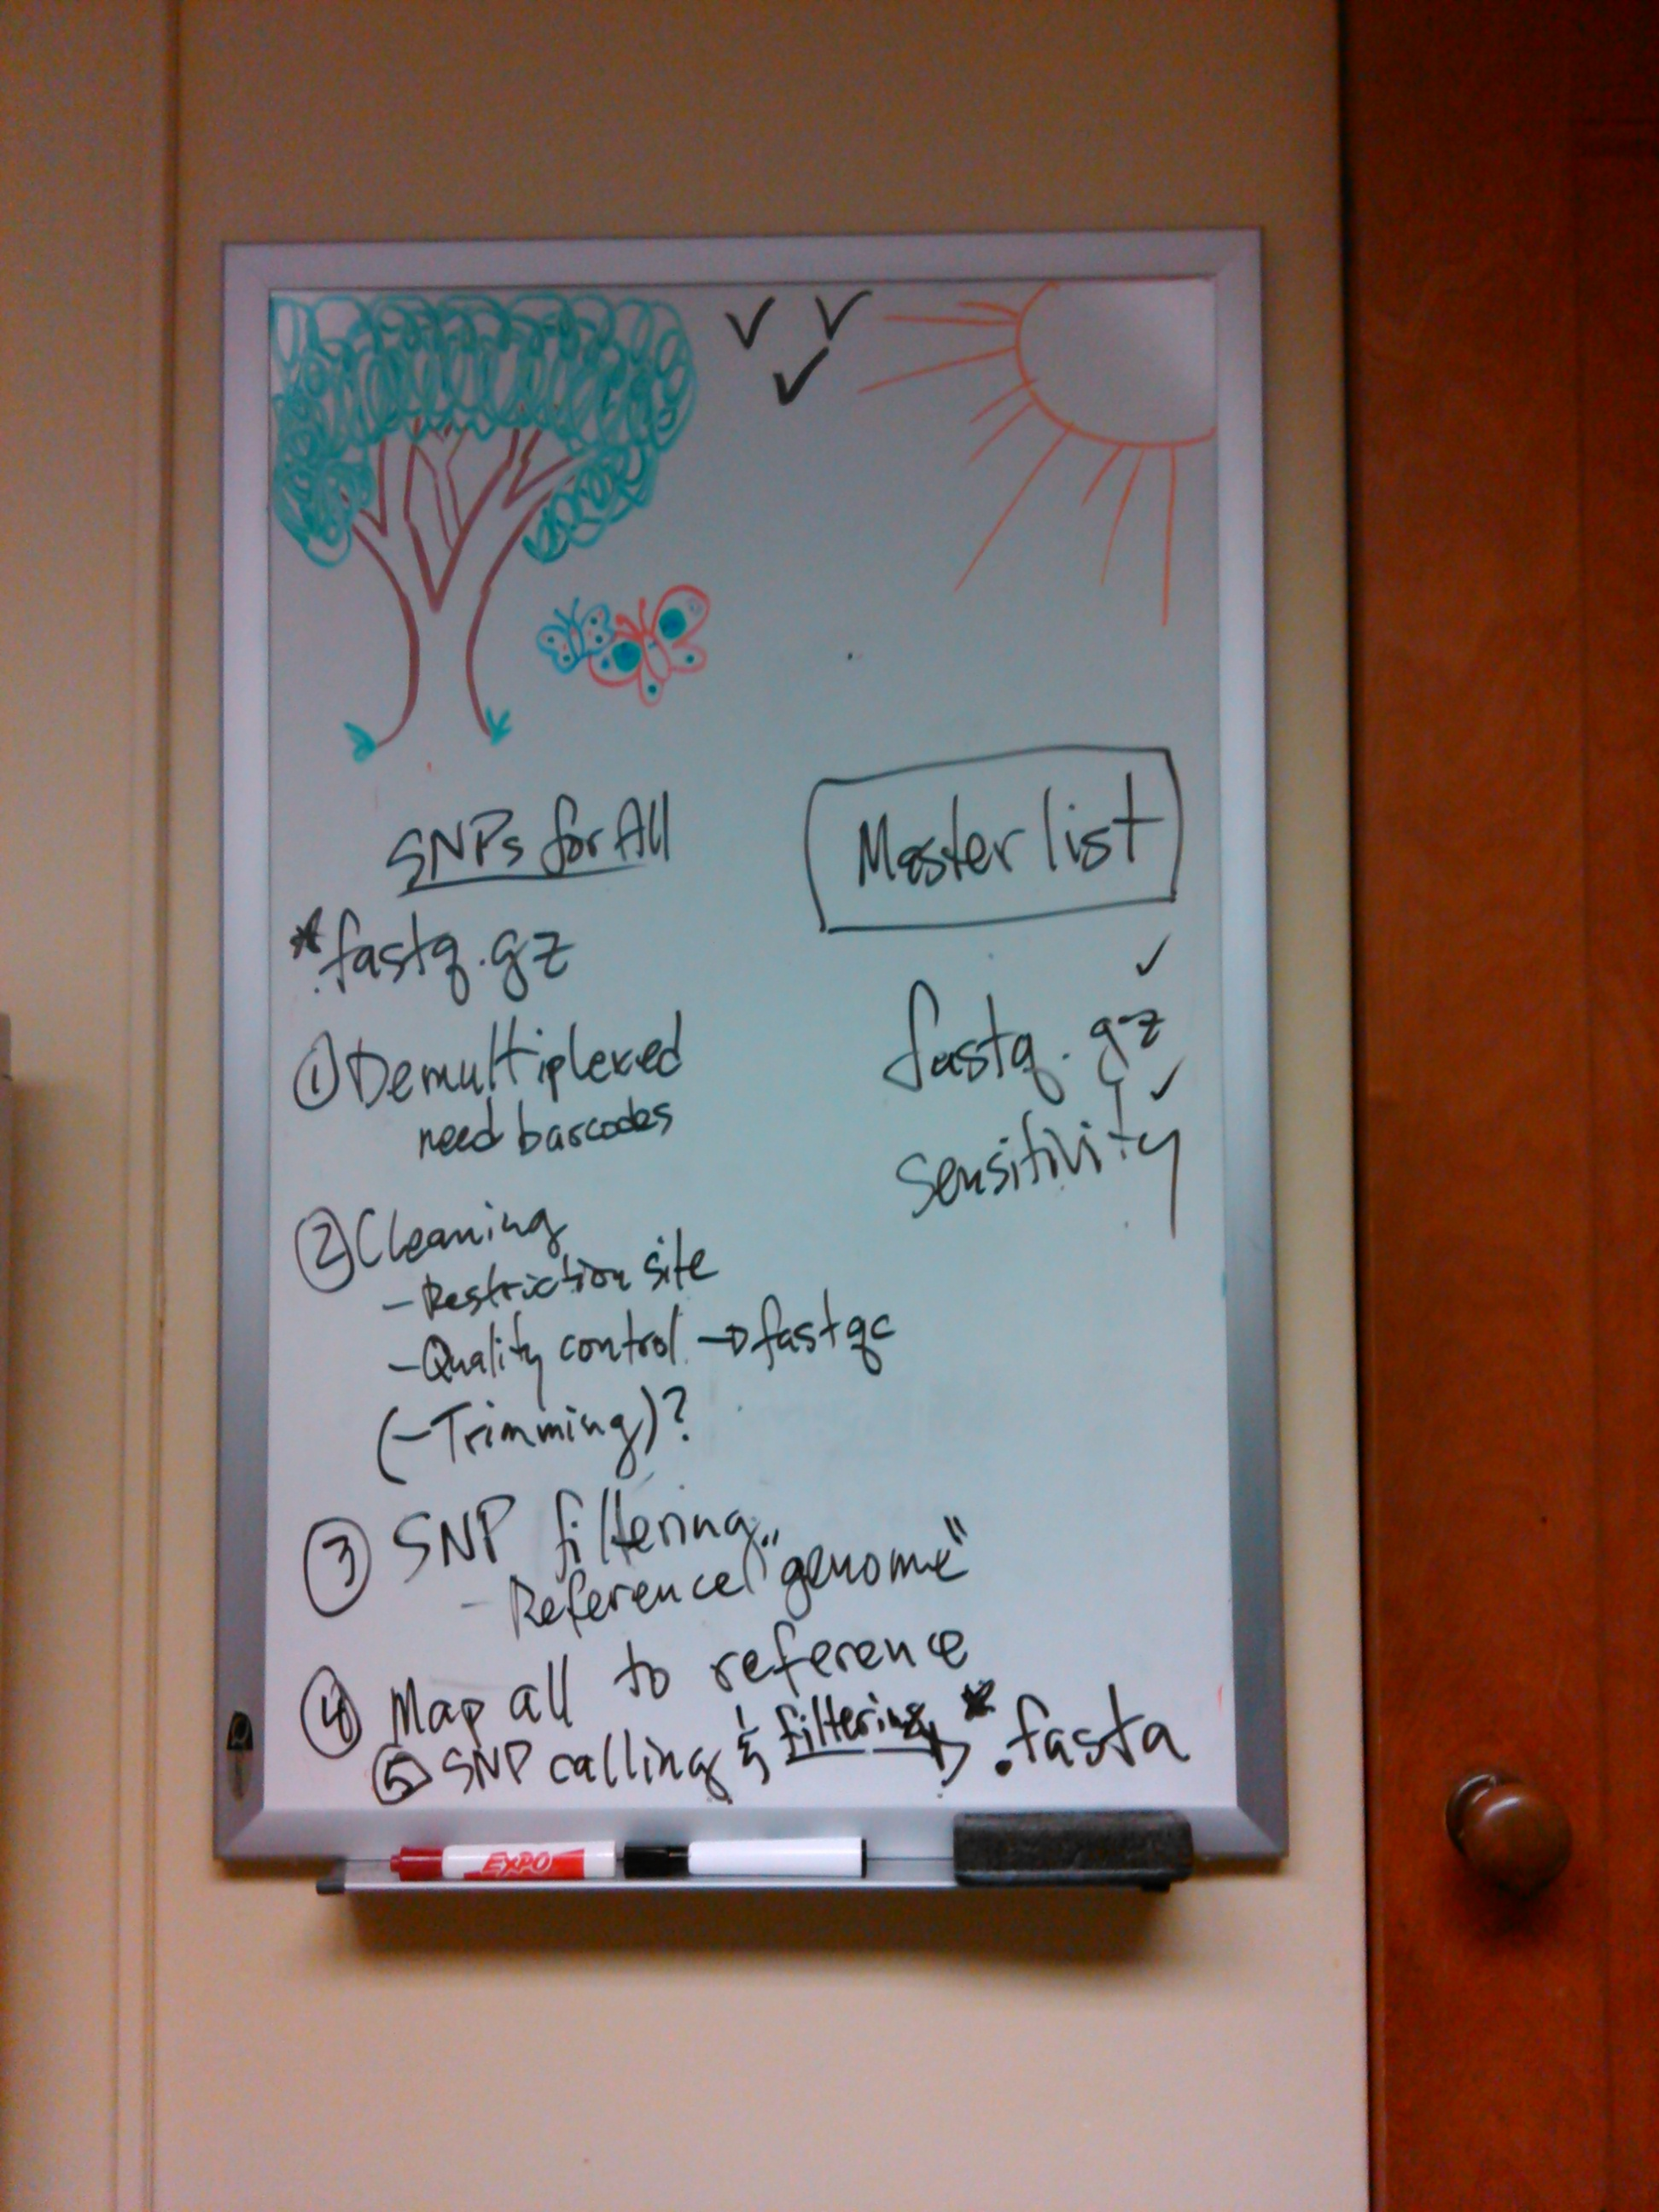 SNPs for All
*.fastq.gz
① Demultiplexed
need barcodes
② Cleaning
- Restriction site
- Quality control → fastqc
(- Trimming)?
③ SNP filtering
- Reference "genome"
④ Map all to reference
⑤ SNP calling & filtering → *.fasta
Master list
✓
fastq.gz
✓
Sensitivity
EXPO